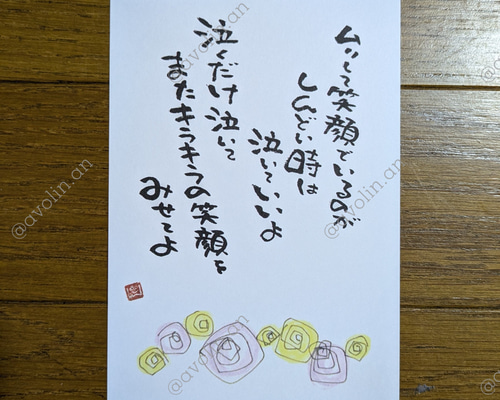 ムリして笑顔でいるのが
しんどい時は
泣いていいよ
泣くだけ泣いて
またキラキラの笑顔を
みせてよ
@avolin.an